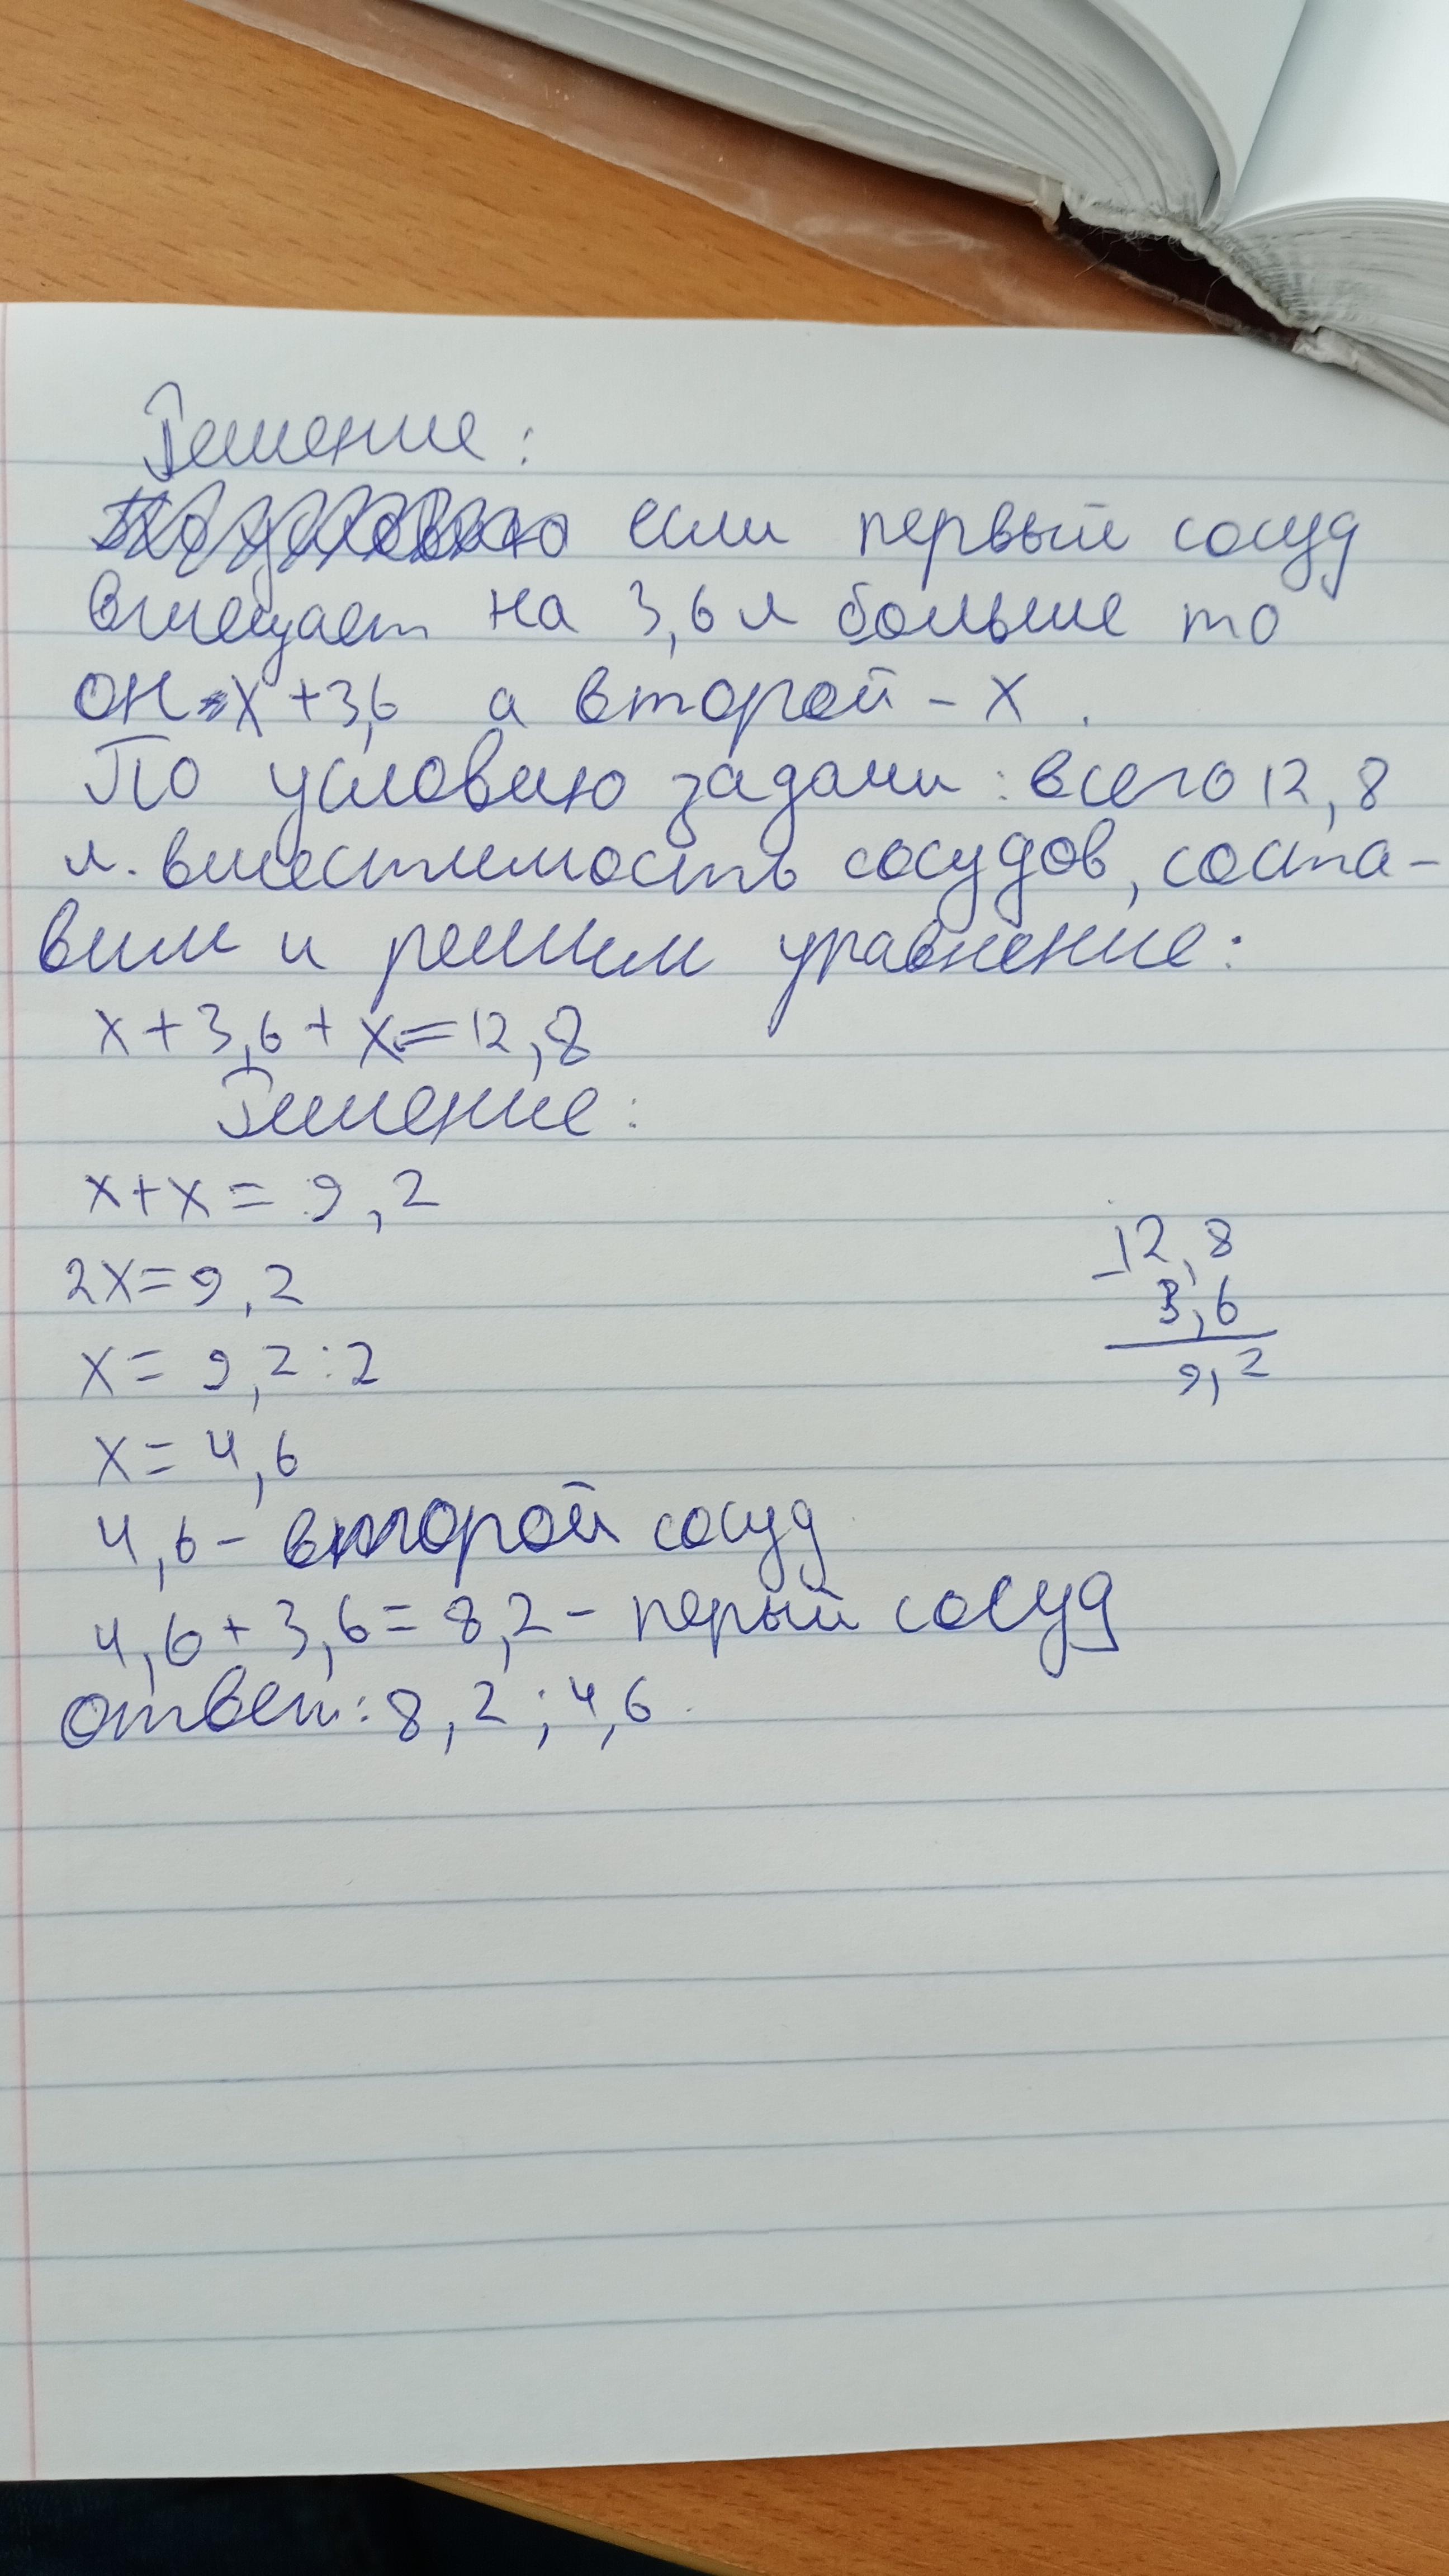 Решение:
если первый сосуд
вмещает на 3,6 л больше то
он - x + 3,6 а второй - x .
По условию задачи : всего 12,8
л. вместимость сосудов, соста-
вим и решим уравнение:
x + 3,6 + x = 12,8
Решение:
x + x = 9,2
2x = 9,2
x = 9,2 : 2
x = 4,6
4,6 - второй сосуд
4,6 + 3,6 = 8,2 - перый сосуд
ответ: 8,2 ; 4,6.
- 12,8
3,6
9,2